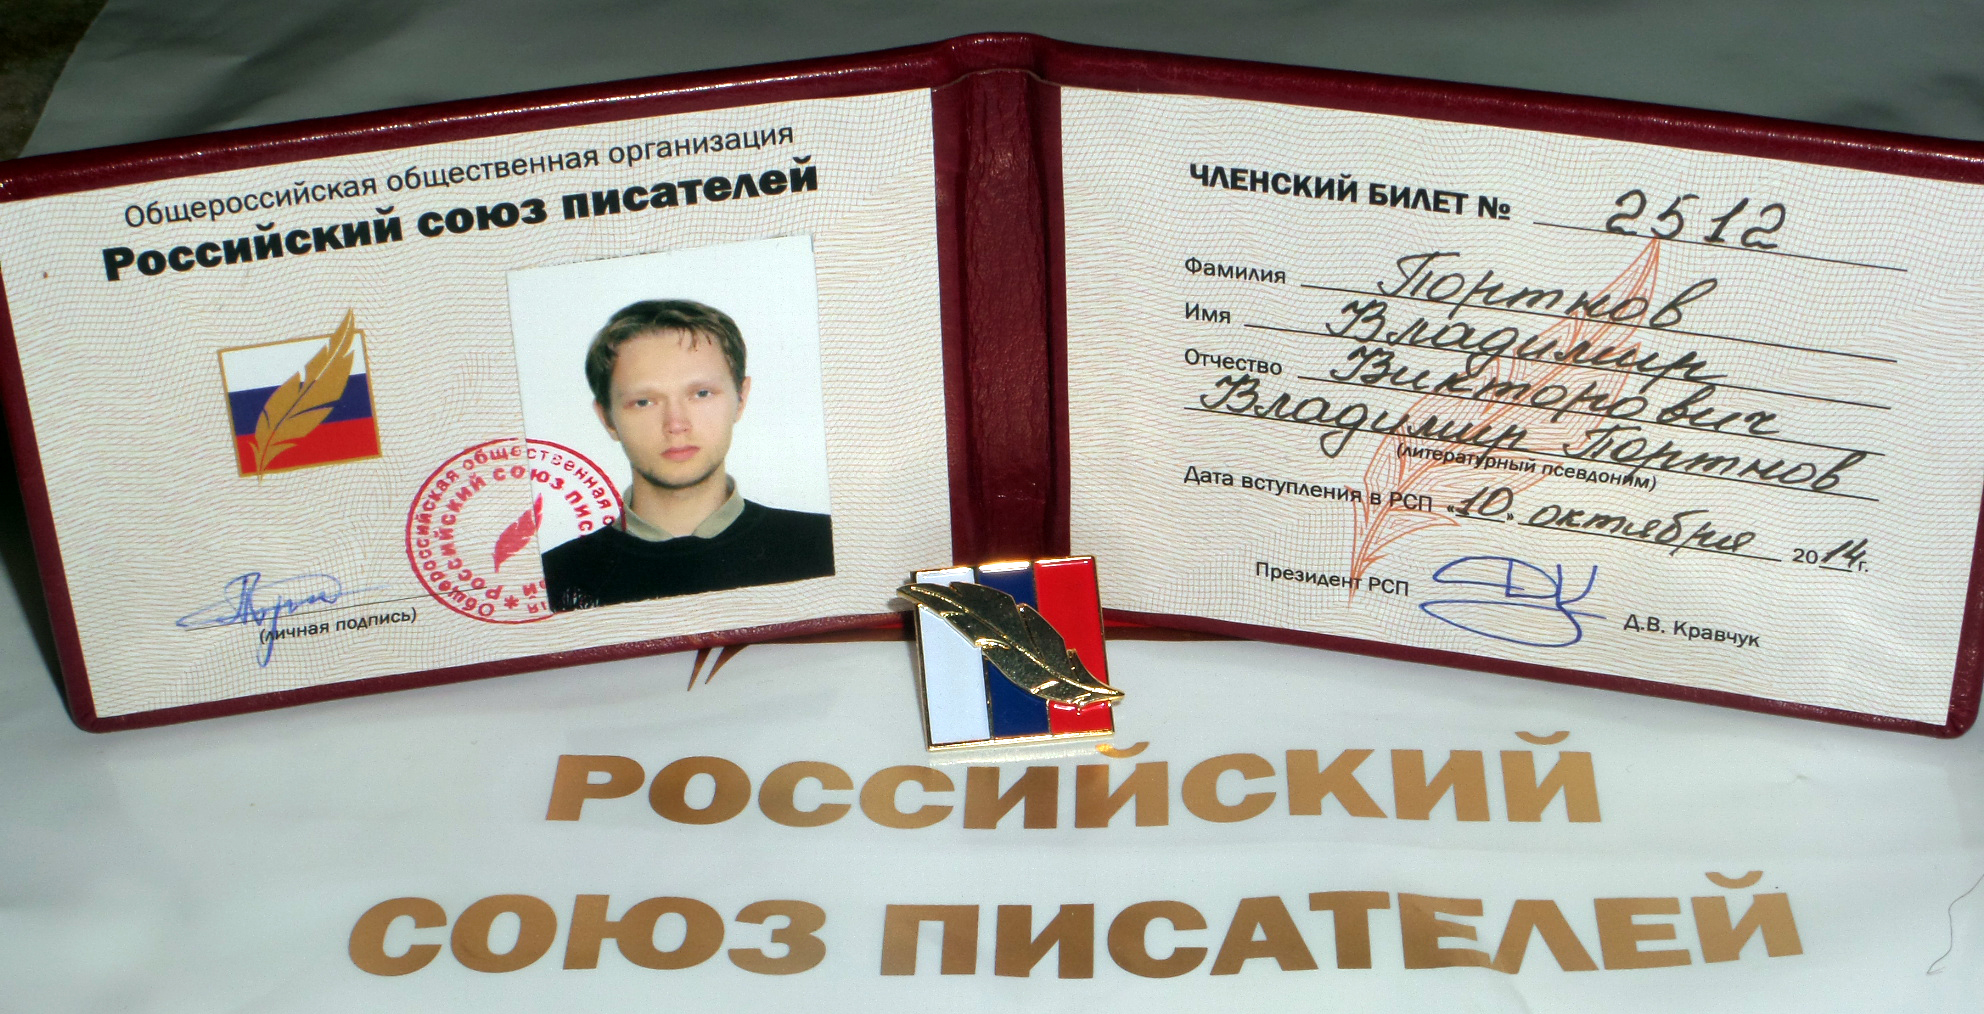 Общероссийская общественная организация
Российский союз писателей
Общероссийская общественная
Российский союз пис
(личная подпись)
ЧЛЕНСКИЙ БИЛЕТ № 2512
Фамилия Портнов
Имя Владимир
Отчество Викторович
Владимир Портнов
(литературный псевдоним)
Дата вступления в РСП «10» октября 2014г.
Президент РСП Д.В. Кравчук
РОССИЙСКИЙ
СОЮЗ ПИСАТЕЛЕЙ